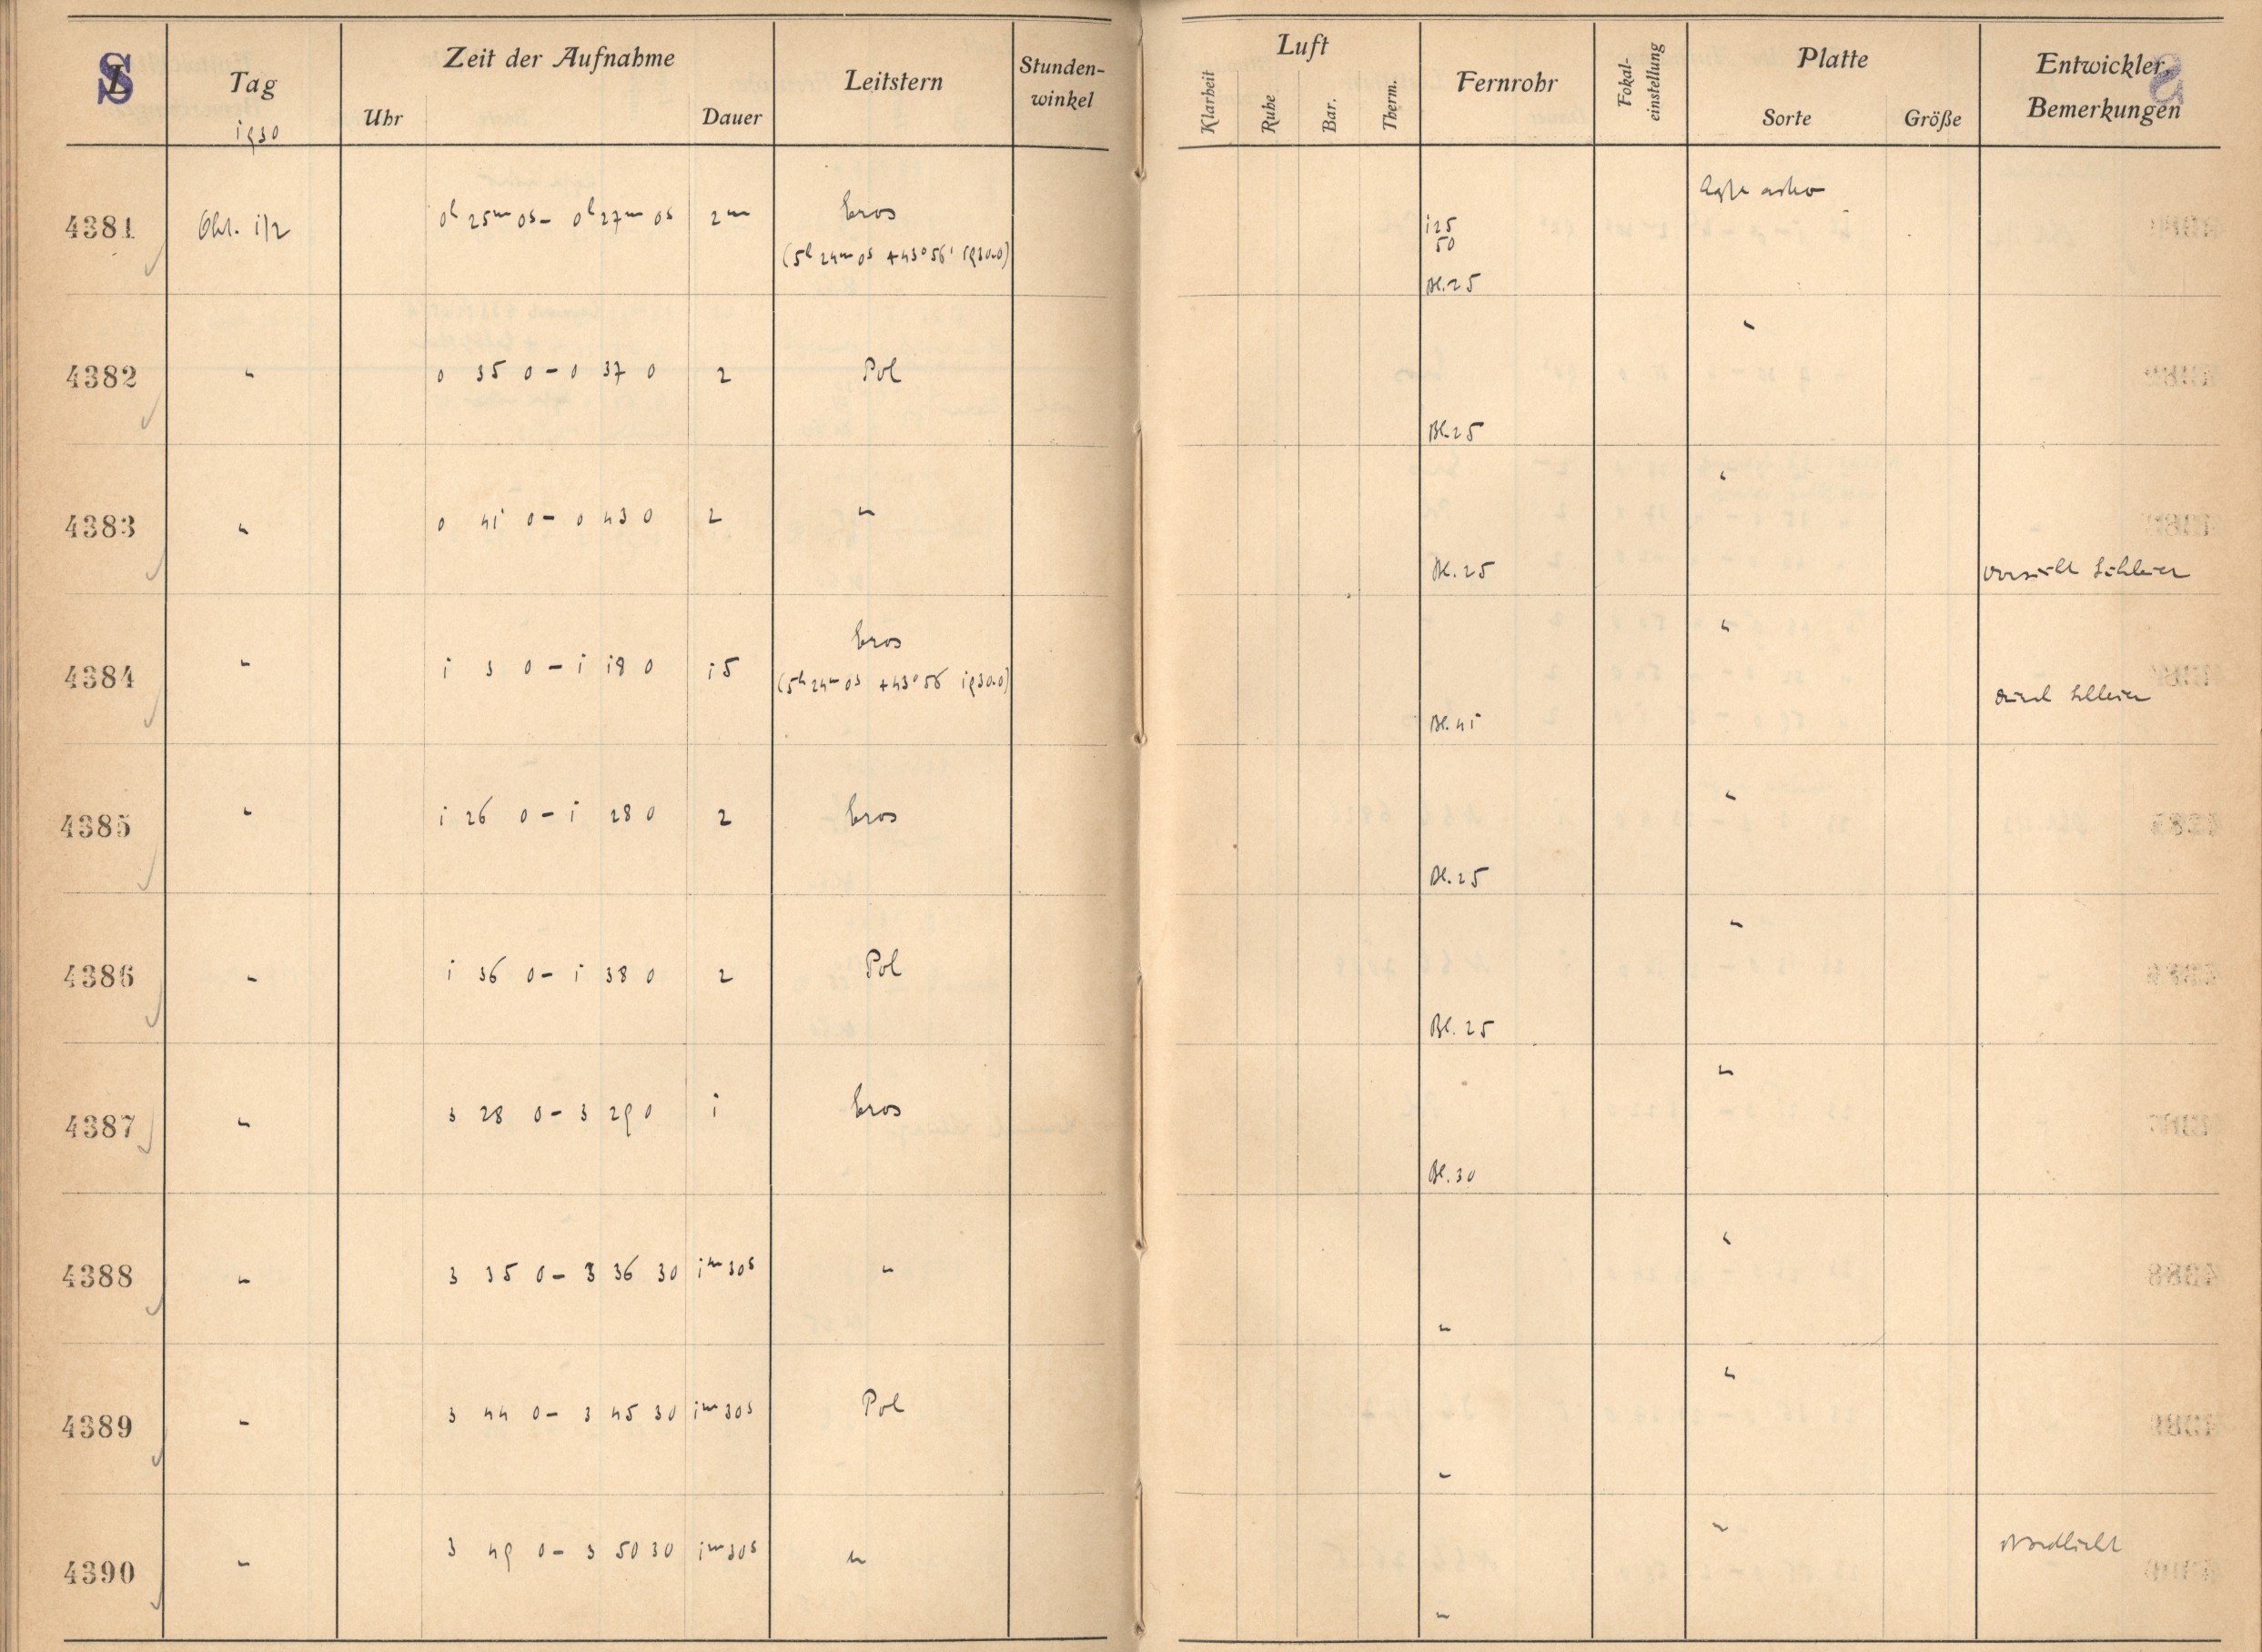 S
Tag
1930
Zeit der Aufnahme
Uhr
Dauer
Leitstern
Stunden-
winkel
Luft
Klarheit
Ruhe
Bar.
Therm.
Fernrohr
Fokal-
einstellung
Platte
Sorte
Größe
Entwickler
Bemerkungen
4381 Okt. 1/2 0h 25m 0s – 0h 27m 0s 2m Eros
(5h 24m 0s +43° 56' 1930.0)
Agfa astro
125
50
Bl. 25
4382 " 0 35 0 – 0 37 0 2 Pol "
Bl. 25
4383 " 0 41 0 – 0 43 0 2 " "
Bl. 25 Schleier
4384 " 1 3 0 – 1 18 0 15 Eros "
(5h 24m 0s +43° 56 1930.0)
durch Schleier
Bl. 41
4385 " 1 26 0 – 1 28 0 2 Eros "
Bl. 25
4386 " 1 36 0 – 1 38 0 2 Pol "
Bl. 25
4387 " 3 28 0 – 3 29 0 1 Eros "
Bl. 30
4388 " 3 35 0 – 3 36 30 1m 30s " "
"
4389 " 3 44 0 – 3 45 30 1m 30s Pol "
"
4390 " 3 49 0 – 3 50 30 1m 30s " " Nordlicht
"